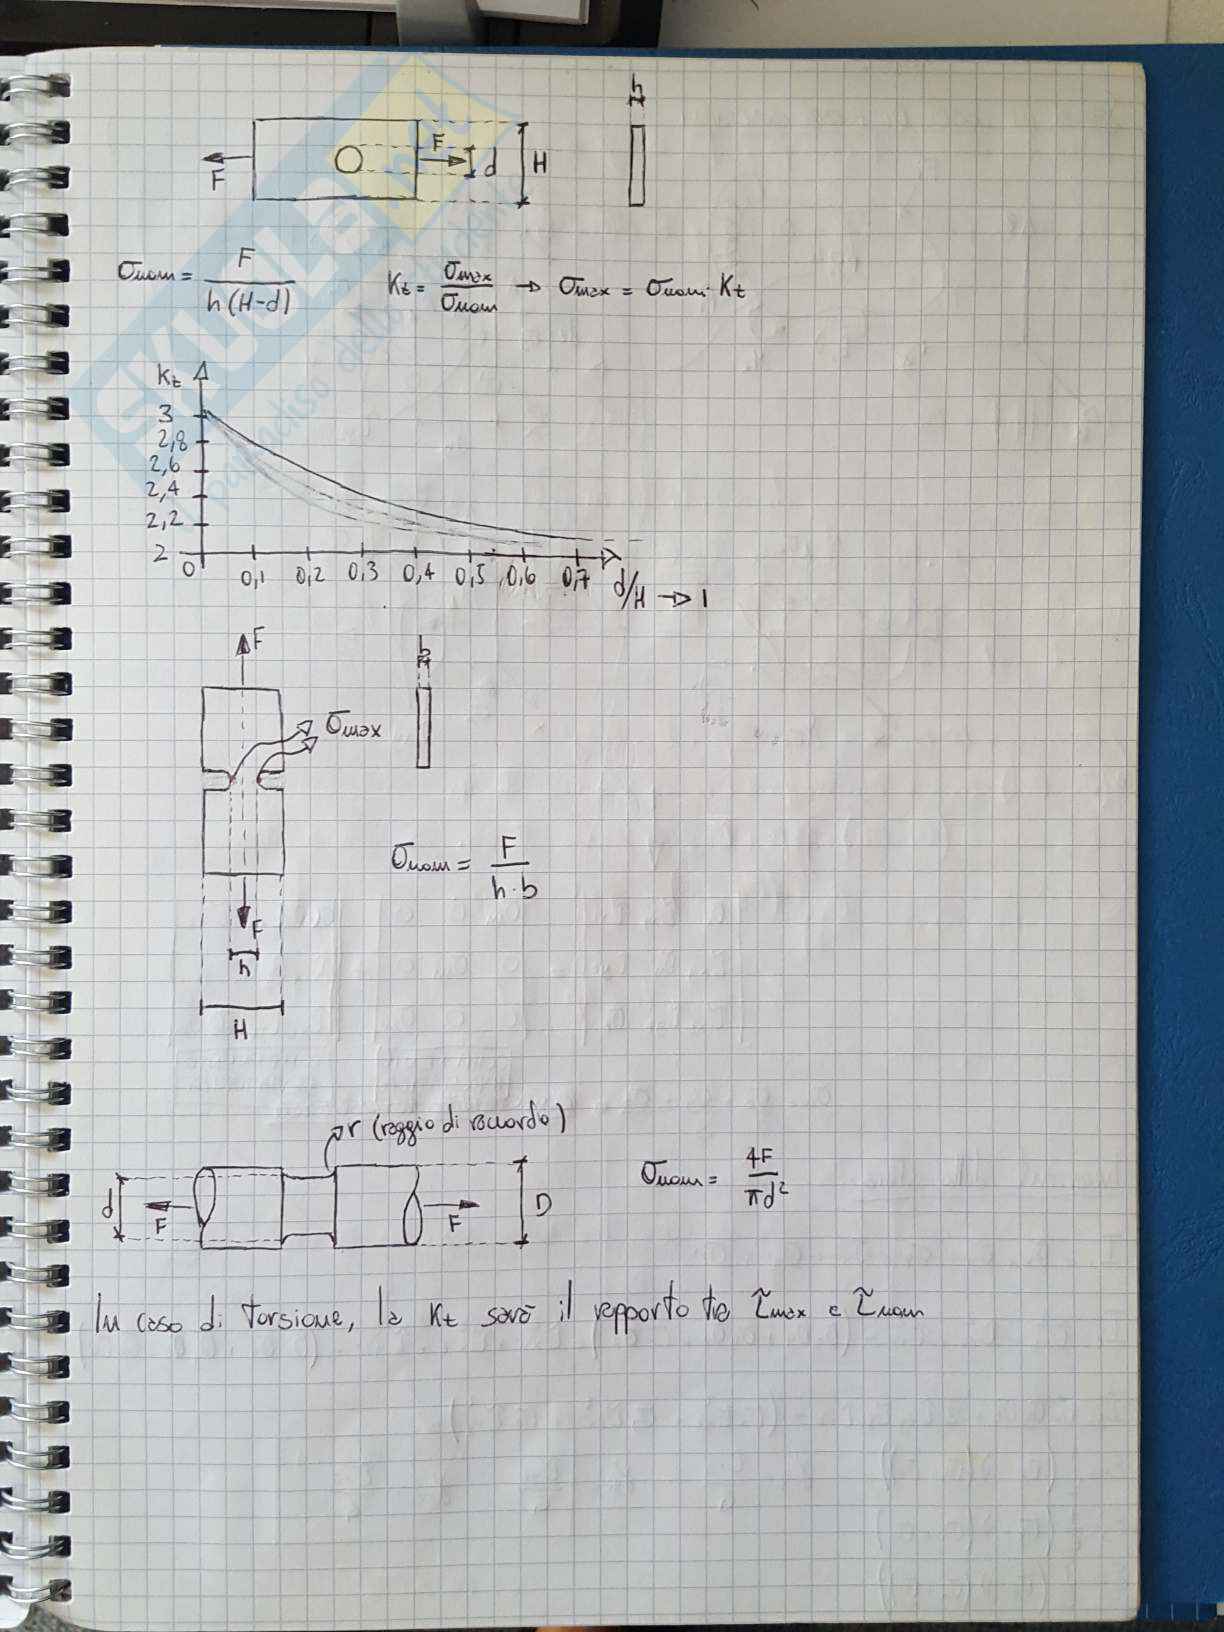 h
F
F
d
H
σnom = F / h(H-d)
Kt = σmax / σnom → σmax = σnom · Kt
Kt
3
2,8
2,6
2,4
2,2
2
0 0,1 0,2 0,3 0,4 0,5 0,6 0,7 d/H → 1
F
b
σmax
σnom = F / h·b
F
h
H
r (raggio di raccordo)
σnom = 4F / πd²
d
F
F
D
In caso di torsione, la Kt sarà il rapporto tra τmax e τnom
SKUOLA.net